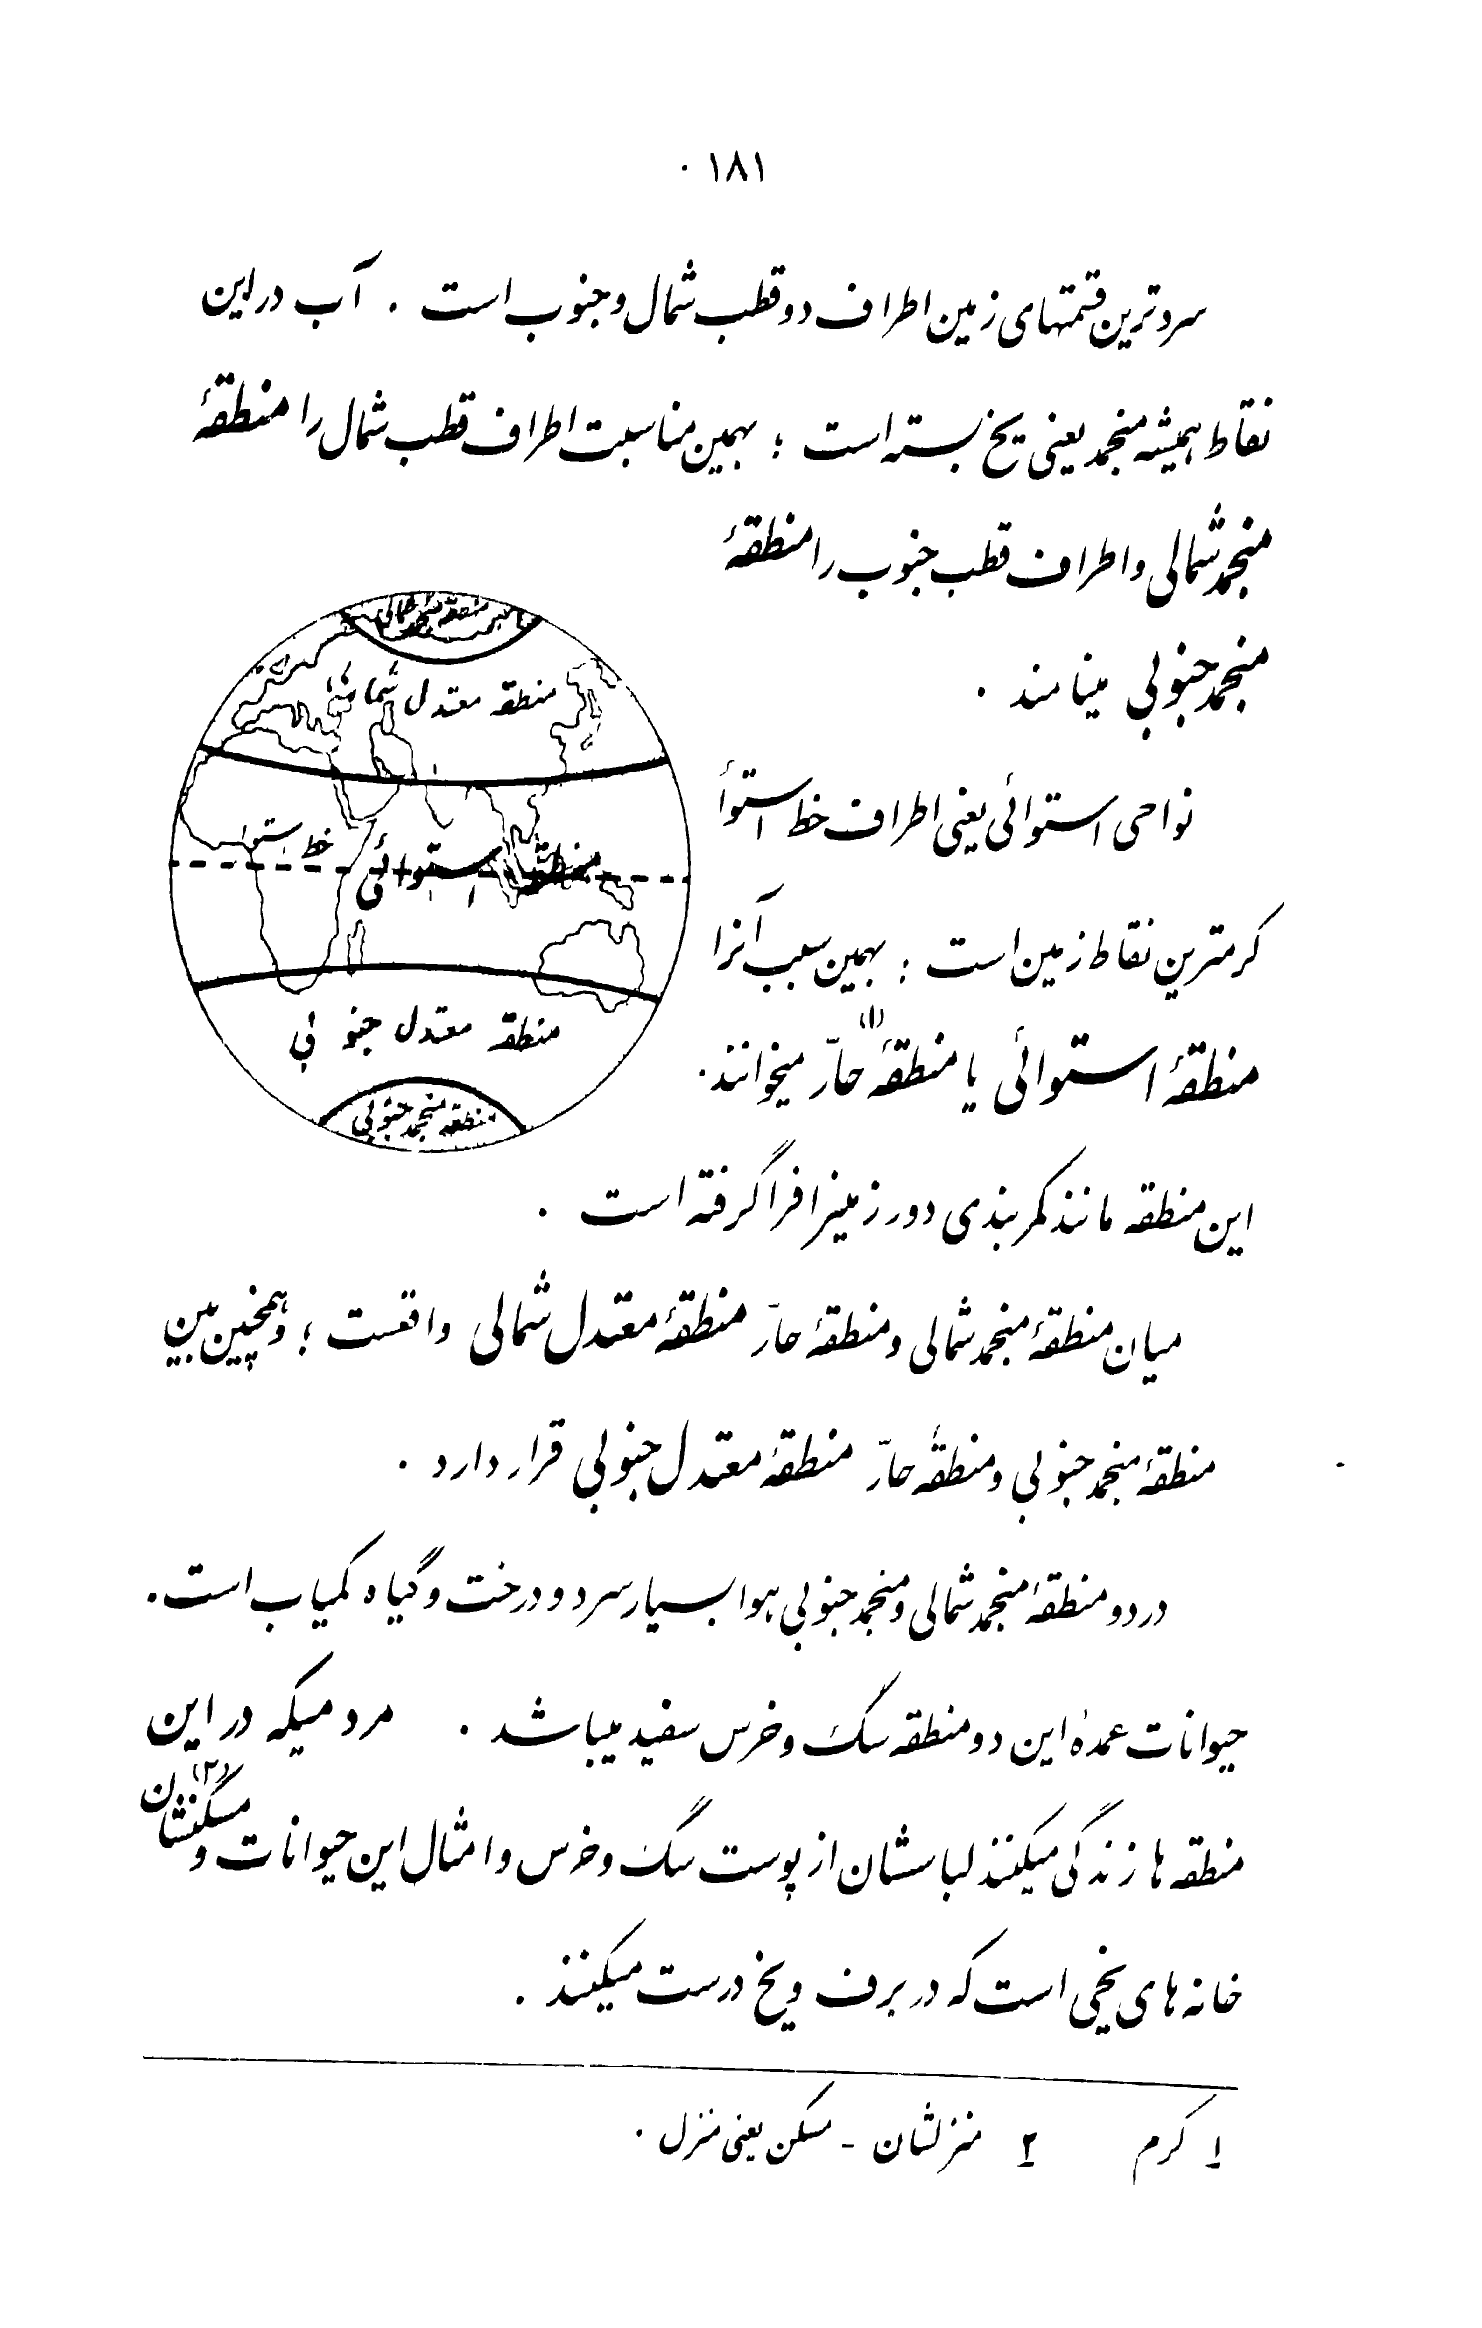 ۱۸۱ .
سردترین قسمتهای زمین اطراف دو قطب شمال و جنوب است . آب در این
نقاط همیشه منجمد یعنی یخ بسته است ؛ بهمین مناسبت اطراف قطب شمال را منطقهٔ
منجمد شمالی و اطراف قطب جنوب را منطقهٔ
منجمد جنوبی مینامند .
نواحی استوائی یعنی اطراف خط استوأ
گرمترین نقاط زمین است : بهمین سبب آنرا
منطقهٔ استوائی یا منطقهٔ حارّ (۱) میخوانند.
این منطقه مانند کمربندی دور زمینرا فرا گرفته است .
منطقه منجمد شمالی
منطقه معتدل شمالی
خط استوا
منطقه استوائی
منطقه معتدل جنوبی
منطقه منجمد جنوبی
میان منطقهٔ منجمد شمالی و منطقهٔ حارّ منطقهٔ معتدل شمالی واقعست ؛ و همچنین بین
منطقهٔ منجمد جنوبی و منطقهٔ حارّ منطقهٔ معتدل جنوبی قرار دارد .
در دو منطقهٔ منجمد شمالی و منجمد جنوبی هوا بسیار سرد و درخت و گیاه کمیاب است.
حیوانات عمدهٔ این دو منطقه سگ و خرس سفید میباشد . مردمیکه در این
منطقه ها زندگی میکنند لباسشان از پوست سگ و خرس و امثال این حیوانات و مسکنشان (۲)
خانه های یخی است که در برف و یخ درست میکنند .
۱ گرم ۲ منزلشان - مسکن یعنی منزل .